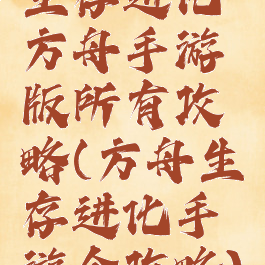 生存进化
方舟手游
版所有攻
略(方舟生
存进化手
游全攻略)